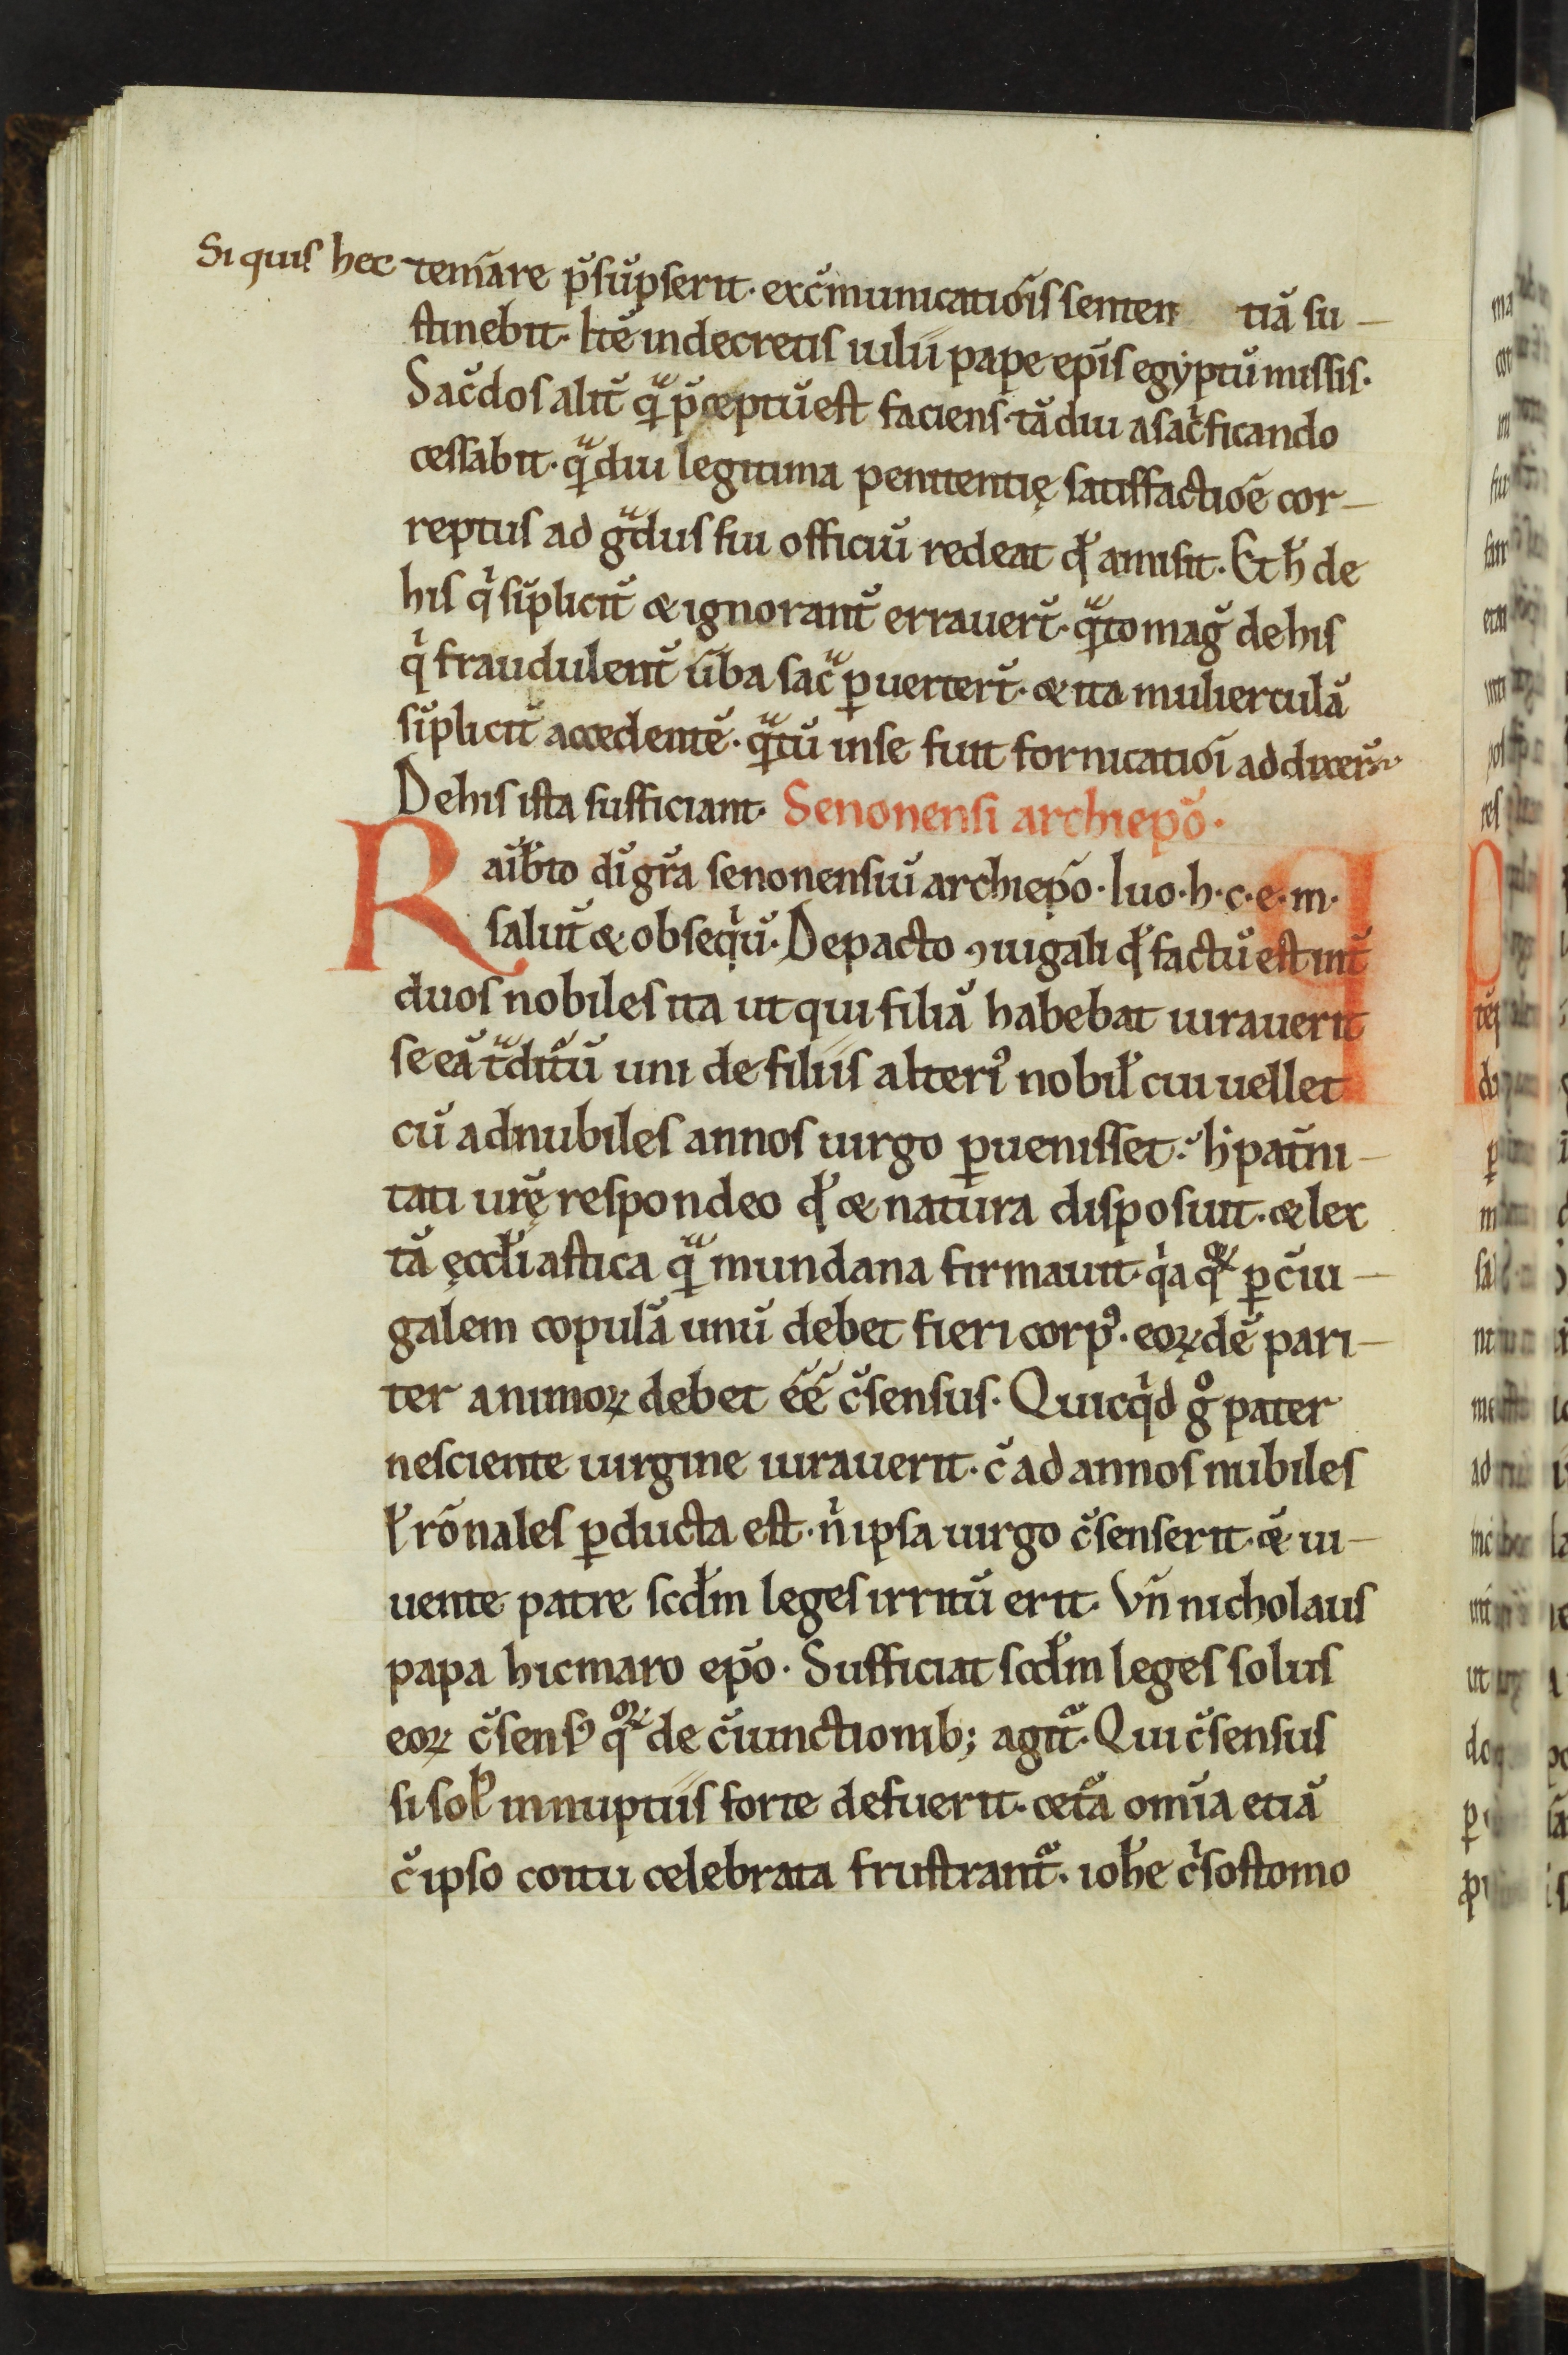 Si quis hec tem̄are p̄sūpserit· exc̄municatiōis senten tiā su-
stinebit· Itē in decretis iulii pape ep̄is egyptū missis·
Sac̄dos alit̄ qͣ p̄ceptū est faciens· tādiu a sacⁱficando
cessabit· qͣdiu legitima penitentię satisfactiōe cor-
reptus ad gͣdus sui officiū redeat qđ amisit· Et ħ de
his qⁱ sīplicit̄ & ignorant̄ errauer̄t· qͣto maḡ de his
qⁱ fraudulent̄ ūba sacͣ ꝑuerter̄t· & ita mulierculā
sīplicit̄ accedentē· qͣtū in se fuit fornicatiōi addixer̄t
De his ista sufficiant· Senonensi archiep̄o·
Raib̄to di gr̄a senonensiū archiep̄o· Iuo· h· c· e· m·
salut̄ & obseqⁱū· De pacto ꝯiugali qđ factū est int̄
duos nobiles ita ut qui filiā habebat iurauerit
se eā tͣditͬū uni de filiis alteriꝰ nobil̄ cui uellet
cū ad nubiles annos uirgo ꝑuenisset· hⁱ pat̄ni-
tati ur̄ę respondeo qđ & natura disposuit· & lex
tā ęccl̄iastica qͣ mundana firmauit· qⁱa qoꝝ ꝑ c̄iu-
galem copulā unū debet fieri corpꝰ· eoꝝdē pari-
ter animoꝝ debet ēē c̄sensus· Quicqⁱd gͦ pater
nesciente uirgine iurauerit· c̄ ad annos nubiles
ł rōnales ꝑducta est· nⁱ ipsa uirgo c̄senserit· & ui-
uente patre scđm leges irritū erit· Vn̄ nicholaus
papa hicmaro ep̄o· Sufficiat scđm leges solus
eoꝝ c̄sensꝰ qoꝝ de c̄iunctionib; agit᷑· Qui c̄sensus
si solꝰ in nuptiis forte defuerit· cet᷑a om̄ia etiā
c̄ ipso coitu celebrata frustrant᷑· ioħe cⁱsostomo